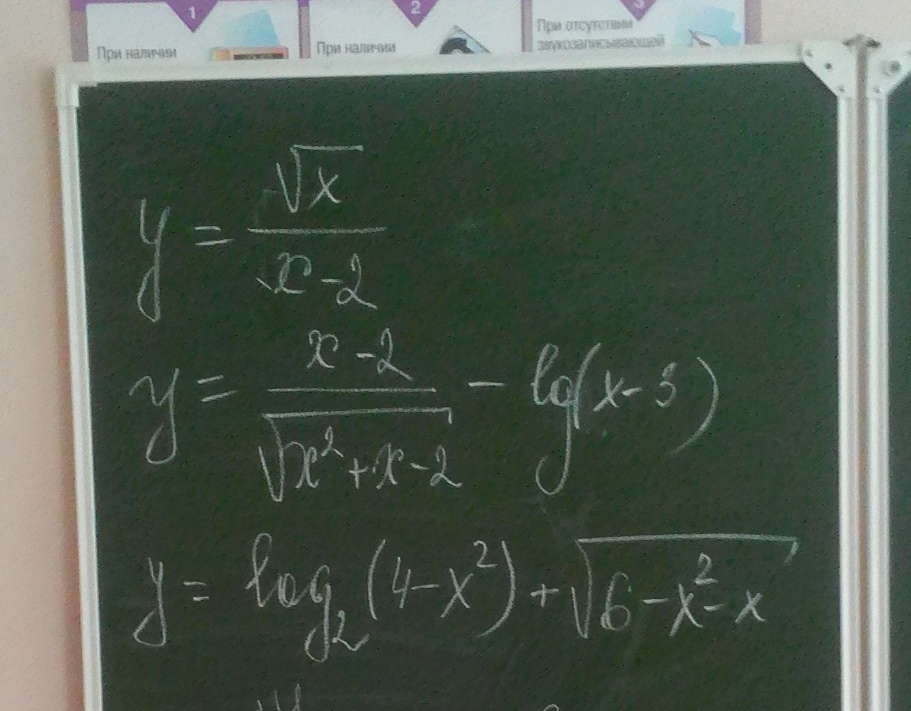 1 2 3
При наличии При наличии При отсутствии
звукозаписывающей
y = √x / (x - 2)
y = (x - 2) / √(x² + x - 2) - lg(x - 3)
y = log₂(4 - x²) + √(6 - x² - x)